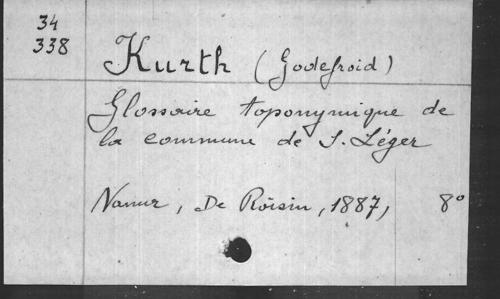 34
338
Kurth (Godefroid)
Glossaire toponymique de
la commune de S. Léger
Namur, De Roisin, 1887, 8°